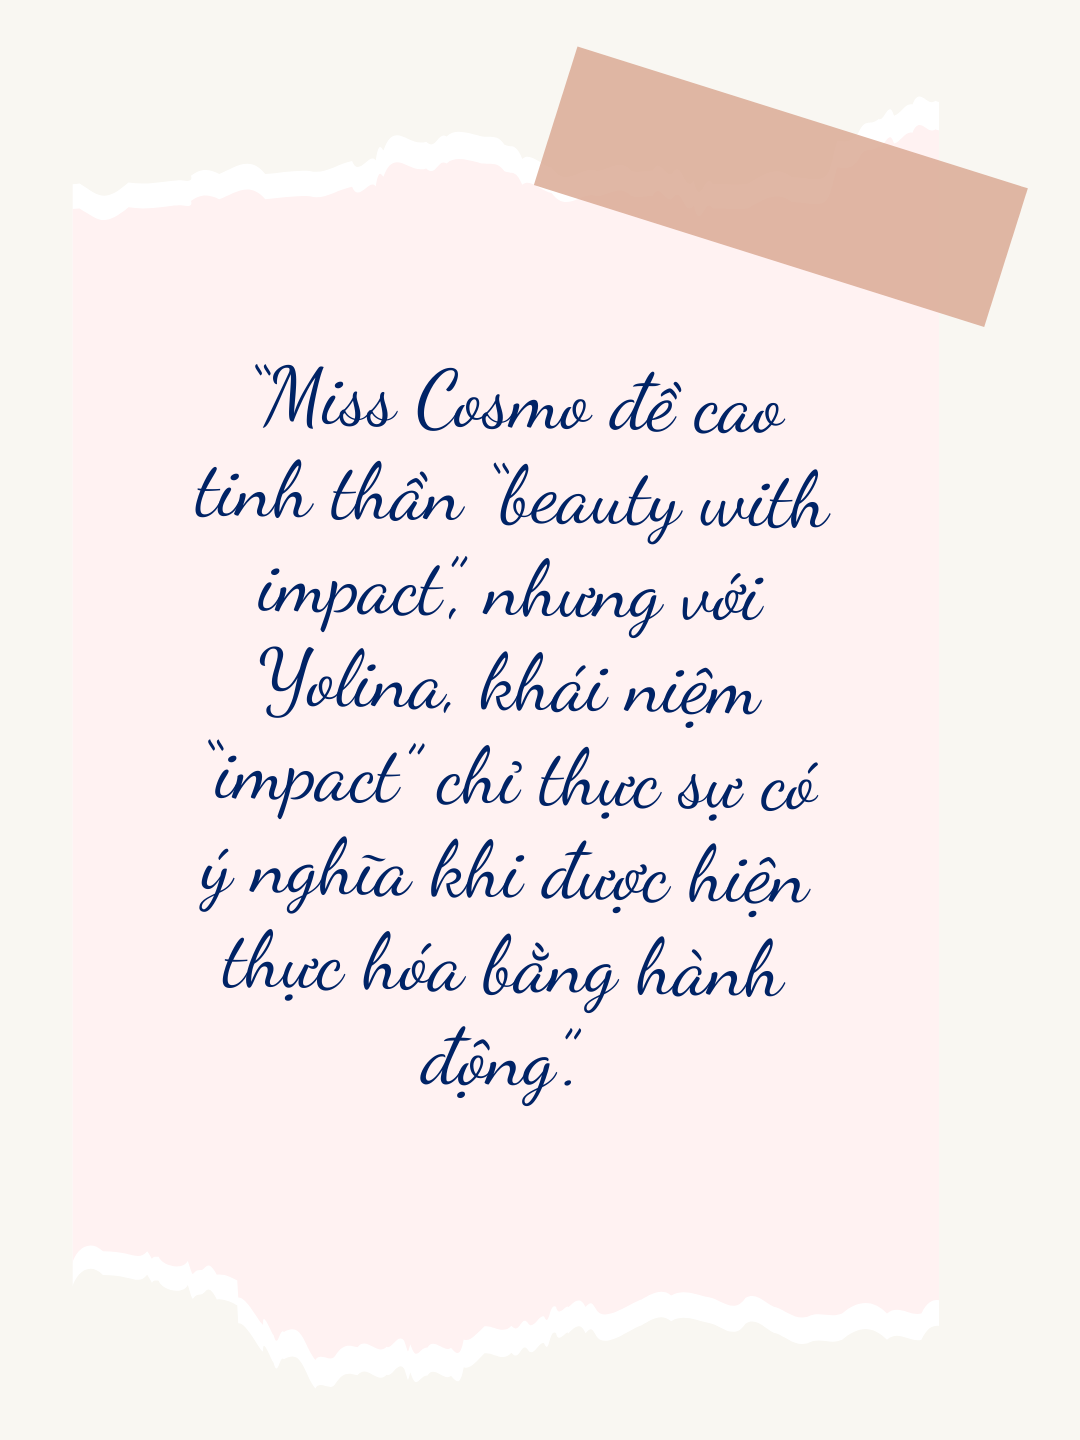 “Miss Cosmo đề cao
tinh thần “beauty with
impact”, nhưng với
Yolina, khái niệm
“impact” chỉ thực sự có
ý nghĩa khi được hiện
thực hóa bằng hành
động”.